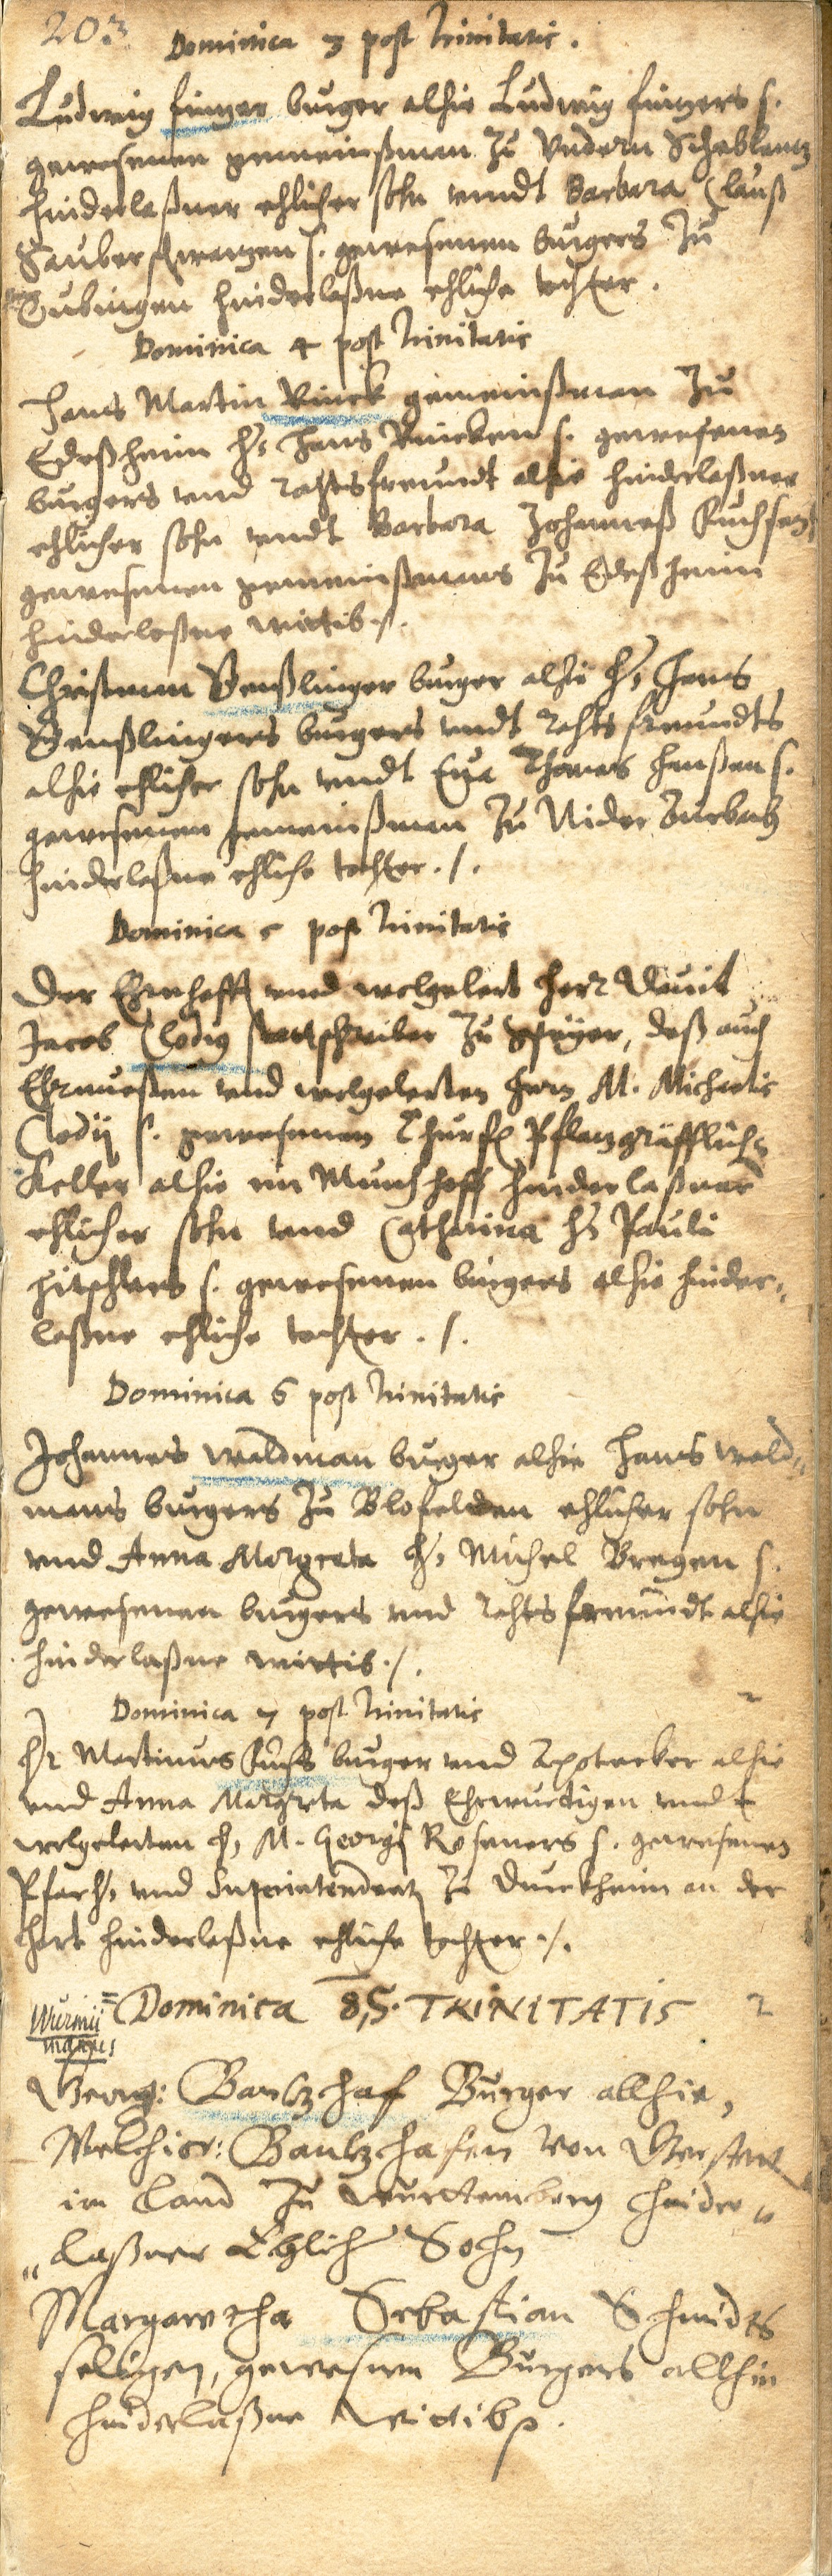 203
Dominica 3 post Trinitatis.
Ludwig Finger burger alhie Ludwig Fingers s.
gewesenen gemeinßman zu Undern
hinderlaßner ehlicher sohn vndt Barbara Clauß
Sauberschwartzen s. gewesenen burgers zu
Tubingen hinderlaßne ehliche tochter.
Dominica 4 post Trinitatis
Hans Martin Rinck gemeinßman zu
Edeßheim H. Hans Rincken s. gewesenen
burgers vnd rahtsfreundt alhie hinderlaßner
ehlicher sohn vndt Barbara Johanneß
gewesenen gemeinßmans zu Edeßheim
hinderlaßne wittib./.
Christman Wenßlinger burger alhie H. Hans
Wenßlingers burgers vndt rahtsfreundts
alhie ehlicher sohn vndt Eva Thomas Hanßen s.
gewesenen gemeinßman zu Nider
hinderlaßne ehliche tochter./.
Dominica 5 post Trinitatis
Der Ehrnhafft vnnd wolgelert Herr Dauit
Jacob Clodig stattschreiber zu Speyer, deß auch
Ehrnuesten vnd wolgelerten Hern M. Michaelis
Clodij s. gewesenen Churf. Pfaltzgräfflich.
Keller alhie im Munchhoff hinderlaßner
ehlicher sohn vnd Catharina H. Pauli
Hitschlers s. gewesenen burgers alhie hinder-
laßne ehliche tochter./.
Dominica 6 post Trinitatis
Johannes Waldman burger alhie Hans Wald-
mans burgers zu Blofelden ehlicher sohn
vnd Anna Margreta H. Michel Bregen s.
gewesenen burgers vnd rahtsfreundt alhie
hinderlaßne wittib./.
Dominica 7 post Trinitatis
Hr Martinus Fuchs burger vnd Apotecker alhie
vnd Anna Margreta deß Ehrwurdigen vnd
wolgelerten H. M. Georgij Roseners s. gewesenen
Pfarh. vnd Superintendentz zu Durckheim an der
Hart hinderlaßne ehliche tochter./.
Dominica 8, S. TRINITATIS
Georg: Bantzhaf Burger allhie,
Melchior: Bantzhafen von
im Land zu Wurttemberg hinder-
laßner Ehlich Sohn
Margaretha Sebastian Schmidts
seligen, gewesenen Burgers allhie
hinderlaßne Wittib.